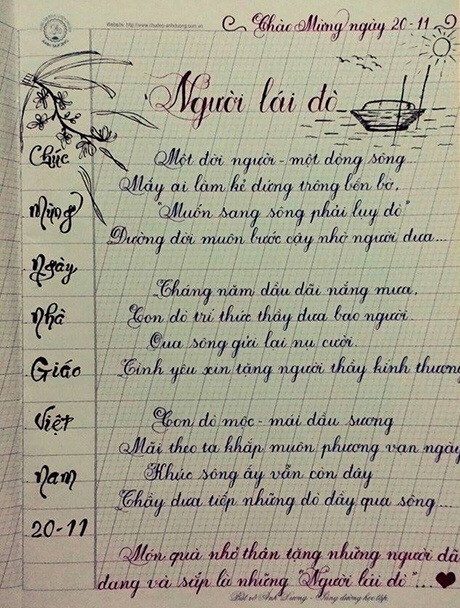 Website: http://www.chudep-anhduong.com.vn
Chào Mừng ngày 20-11
Người lái đò
Chúc
Mừng
Ngày
Nhà
Giáo
Việt
Nam
20-11
Một đời người - một dòng sông...
Mấy ai làm kẻ đứng trông bến bờ,
"Muốn sang sông phải lụy đò"
Đường đời muôn bước cậy nhờ người đưa...
Tháng năm dầu dãi nắng mưa,
Con đò trí thức thầy đưa bao người.
Qua sông gửi lại nụ cười
Tình yêu xin tặng người thầy kính thương
Con đò mộc - mái đầu sương
Mãi theo ta khắp muôn phương vạn ngày
Khúc sông ấy vẫn còn đây
Thầy đưa tiếp những đò đầy qua sông...
Món quà nhỏ thân tặng những người đã
đang và sắp là những "Người lái đò"...
Bút nở Ánh Dương - Sáng đường học tập